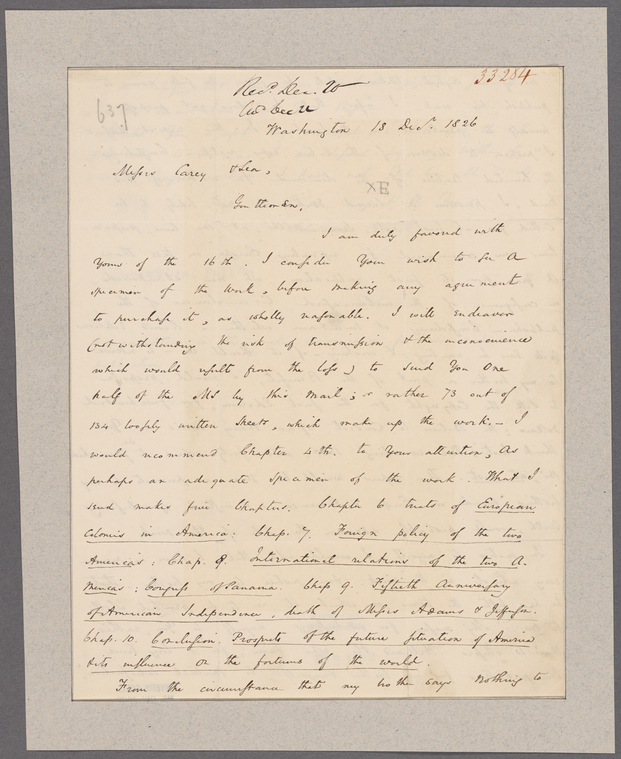 33284
637
Rec'd. Dec. 20
Dec 22
Washington 18 Dec'r. 1826
Messrs Carey & Lea,
XE
Gentlemen,
I am duly favored with
Yours of the 16th. I consider Your wish to see a
specimen of the work, before making any agreement
to purchase it, as wholly reasonable. I will Endeavor
(notwithstanding the risk of transmission & the inconvenience
which would result from the loss) to send You One
half of the MS by this Mail; or rather 73 out of
134 loosely written sheets, which make up the work. – I
would recommend Chapter 4th. to Your attention, As
perhaps an adequate specimen of the work. What I
send makes five Chapters. Chapter 6 treats of European
Colonies in America: Chap. 7. Foreign policy of the two
Americas: Chap. 8. International relations of the two A-
mericas; Congress of Panama. Chap 9. Fiftieth Anniversary
of American Independence, death of Messrs Adams & Jefferson.
Chap. 10. Conclusion. Prospects of the future situation of America
& its influence on the fortunes of the world.
From the circumstance that my brother says Nothing to